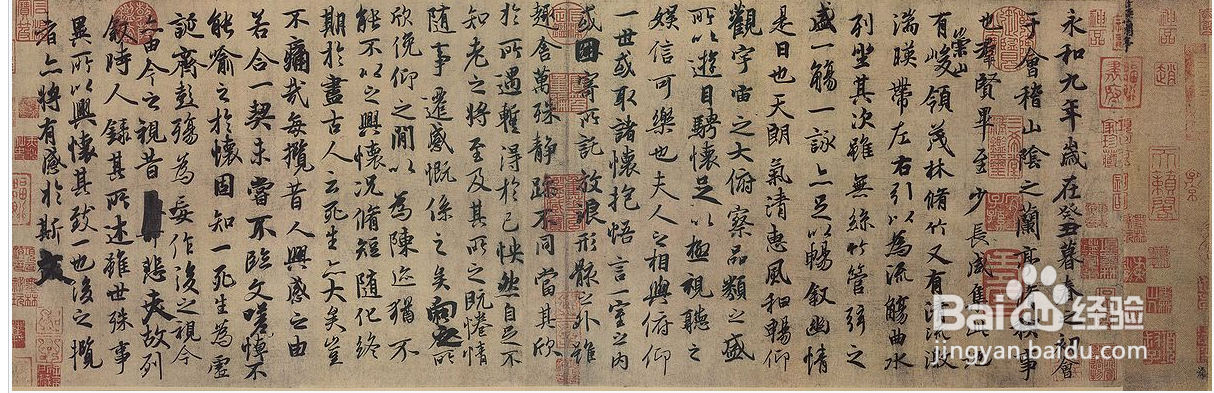 永和九年歲在癸丑暮春之初會
于會稽山陰之蘭亭事
也羣賢畢至少長咸集
有崇山峻領茂林脩竹又有激
湍暎帶左右引以為流觴曲水
列坐其次雖無絲竹管弦之
盛一觴一詠亦足以暢叙幽情
是日也天朗氣清惠風和暢仰
觀宇宙之大俯察品類之盛
所以遊目騁懷足以極視聽之
娛信可樂也夫人之相與俯仰
一世或取諸懷抱悟言一室之内
或因寄所託放浪形骸之外雖
趣舍萬殊静躁不同當其欣
於所遇暫得於己怏然自足不
知老之將至及其所之既惓情
隨事遷感慨係之矣向之所
欣俛仰之閒以為陳迹猶不
能不以之興懷况脩短隨化終
期於盡古人云死生亦大矣豈
不痛哉每攬昔人興感之由
若合一契未嘗不臨文嗟悼不
能喻之於懷固知一死生為虛
誕齊彭殤為妄作後之視今
亦由今之視昔悲夫故列
叙時人錄其所述雖世殊事
異所以興懷其致一也後之攬
者亦將有感於斯文
Baidu经验
jingyan.baidu.com